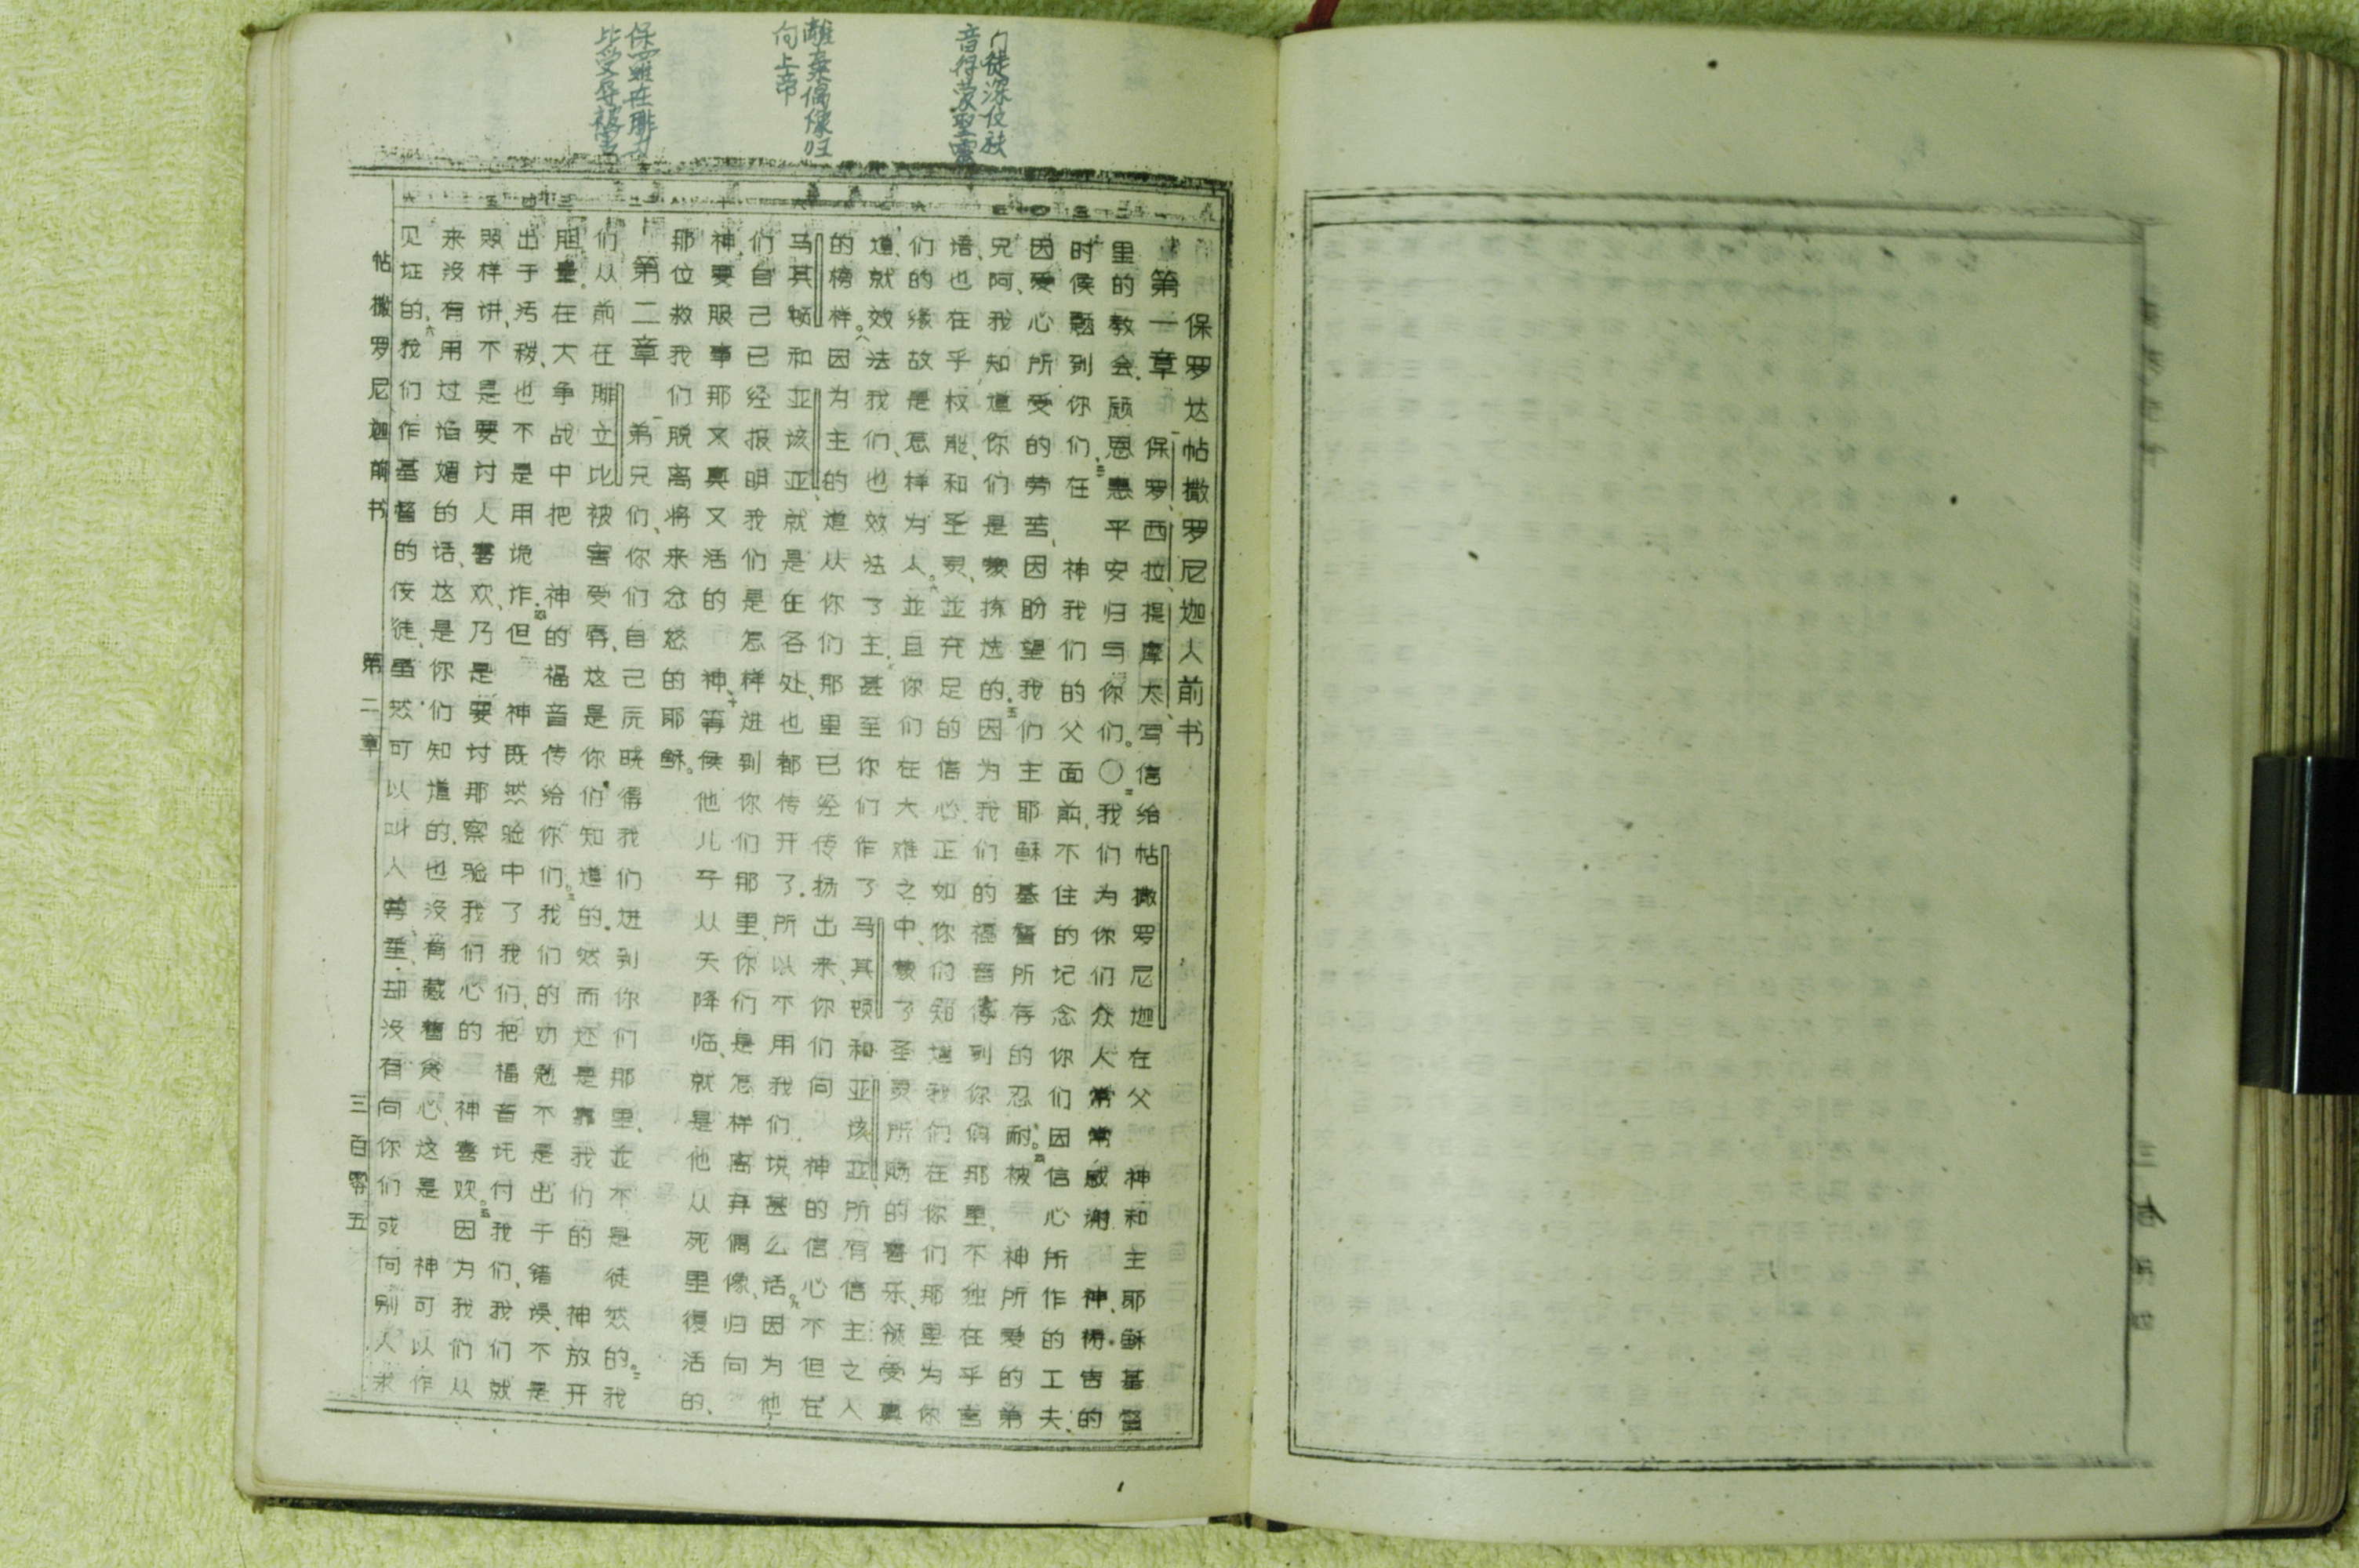 门徒深受扶
音得蒙聖靈
離棄偶像归
向上帝
保羅在腓力
比受辱被害
保罗达帖撒罗尼迦人前书
第一章 一保罗、西拉、提摩太、写信给帖撒罗尼迦在父 神和主耶稣基督
里的教会.愿恩惠平安归与你们。〇二我们为你们众人常常感谢 神、祷告的
时候题到你们、三在 神我们的父面前、不住的记念你们因信心所作的工夫、
因爱心所受的劳苦、因盼望我们主耶稣基督所存的忍耐。四被 神所爱的弟
兄阿、我知道你们是蒙拣选的.五因为我们的福音传到你们那里、不独在乎言
语、也在乎权能、和圣灵、並充足的信心、正如你们知道我们在你们那里为你
们的缘故是怎样为人。六並且你们在大难之中、蒙了圣灵所赐的喜乐、领受真
道、就效法我们、也效法了主.七甚至你们作了马其顿和亚该亚、所有信主之人
的榜样。八因为主的道从你们那里已经传扬出来、你们向 神的信心不但在
马其顿和亚该亚、就是在各处、也都传开了.所以不用我们、说甚么话。九因为他
们自己已经报明我们是怎样进到你们那里、你们是怎样离弃偶像、归向
神、要服事那又真又活的 神、十等候他儿子从天降临、就是他从死里復活的、
那位救我们脱离将来忿怒的耶稣。
第二章 一弟兄们、你们自己原晓得我们进到你们那里、並不是徒然的。二我
们从前在腓立比被害受辱、这是你们知道的.然而还是靠我们的 神放开
胆量.在大争战中把 神的福音传给你们。三我们的劝勉不是出于错误、不是
出于污秽、也不是用诡诈.四但 神既然验中了我们、把福音托付我们、我们就
照样讲、不是要讨人喜欢、乃是要讨那察验我们心的 神喜欢。五因为我们从
来没有用过谄媚的话、这是你们知道的、也没有藏着贪心、这是 神可以作
见证的.六我们作基督的使徒、虽然可以叫人尊重、却没有向你们或向别人求
帖撒罗尼迦前书 第二章 三百零五